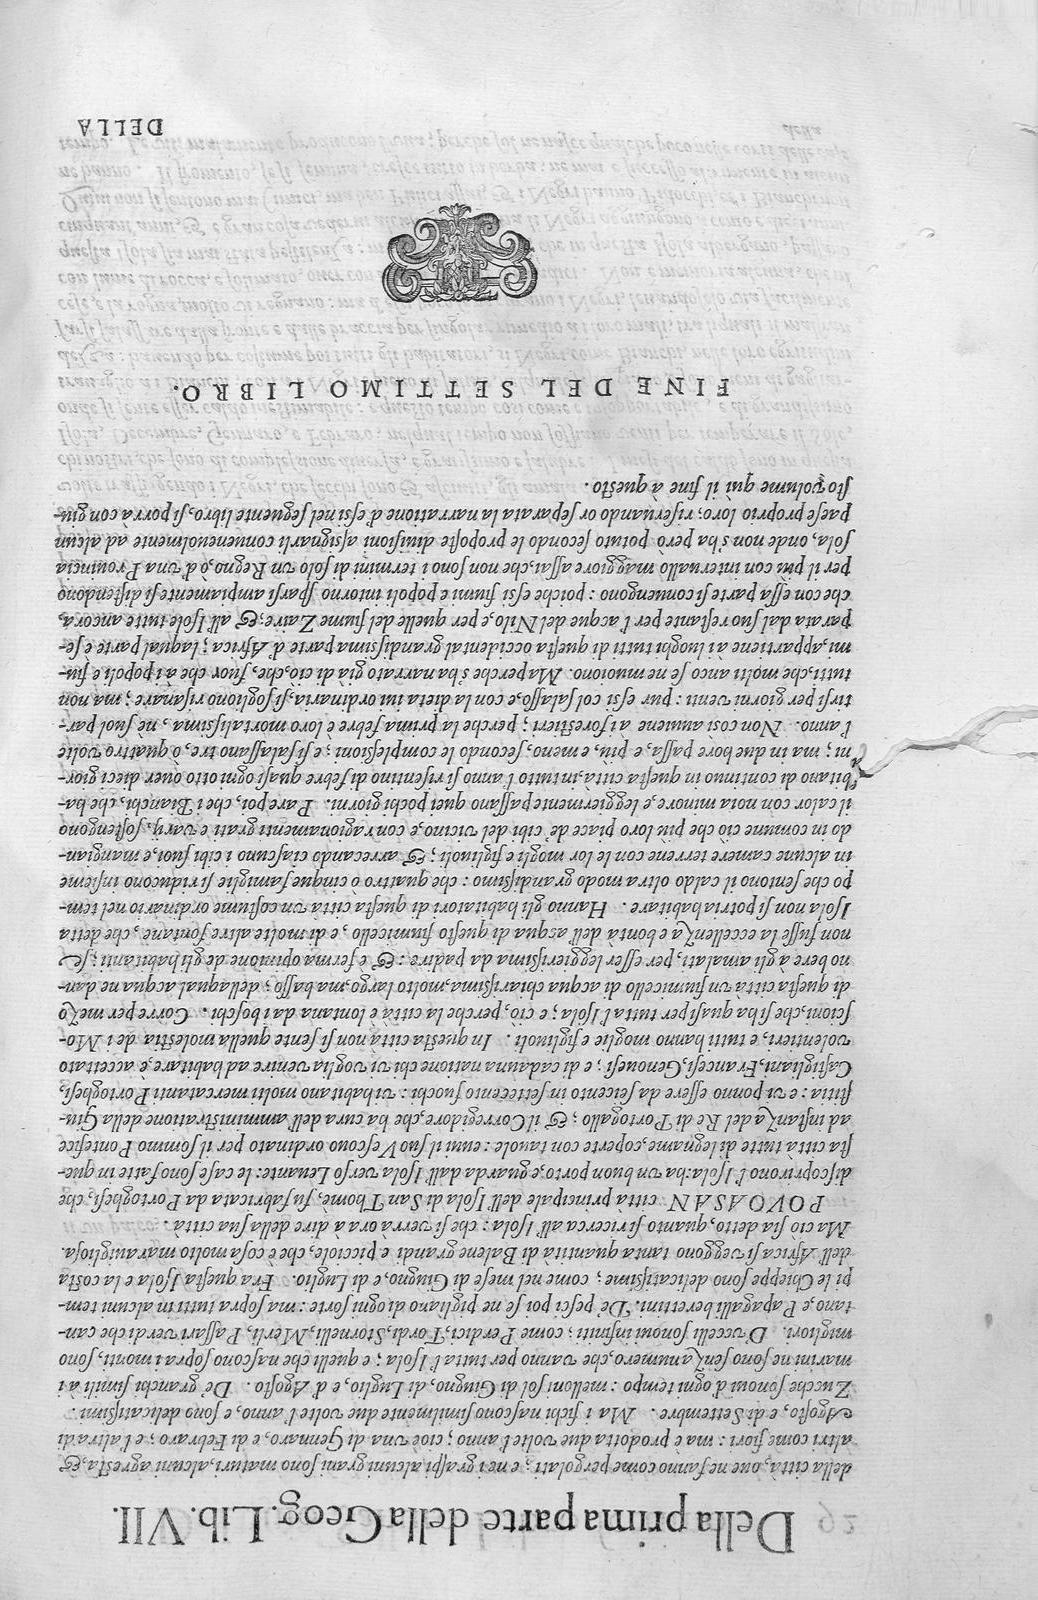 Della prima parte della Geog. Lib. VII.
della città, oue ne fanno come pergolati; e ne i graspi alcuni grani sono maturi, alcuni agresta, &
altri come fiori: ma è prodotta due volte l'anno; cioè una di Gennaro, e di Febraro; e l'altra di
Agosto, e di Settembre. Ma i fichi nascono similmente due volte l'anno, e sono delicatissimi:
Zucche sonoui d'ogni tempo: melloni sol di Giugno, di Luglio, e d'Agosto. Dè granchi simili a i
marini ne sono senza numero, che vanno per tutta l'Isola; e quelli che nascono sopra i monti, sono
migliori. D'uccelli sonoui infiniti; come Perdici, Tordi, Stornelli, Merli, Passari verdi che can-
tano, e Papagalli berettini. De' pesci poi se ne pigliano di ogni sorte: ma sopra tutti in alcuni tem-
pi le Chieppe sono delicatissime; come nel mese di Giugno, e di Luglio. Fra questa Isola e la costa
dell'Africa si veggono tanta quantità di Balene grandi e picciole, che è cosa molto marauigliosa.
Ma ciò sia detto, quanto si ricerca all'Isola: che si verrà ora à dire della sua città.
POVOASAN città principale dell'Isola di San Thomè, fu fabricata da Portoghesi, che
discoprirono l'Isola: ha vn buon porto, e guarda dall'Isola verso Leuante: le case sono fatte in que-
sta città tutte di legname, coperte con tauole: euui il suo Vescouo ordinato per il sommo Pontefice
ad instanza del Rè di Portogallo; & il Corregedore, che ha cura dell'amministratione della Giu-
stitia: e vi ponno essere da seicento in settecento fuochi: vi habitano molti mercatanti Portoghesi,
Castigliani, Francesi, Genouesi; e di cadauna natione chi vi voglia venire ad habitare, è accettato
volentieri, e tutti hanno moglie e figliuoli. In questa città non si sente quella molestia de i Mo-
scioni, che si ha quasi per tutta l'Isola; e ciò, perche la città è lontana da i boschi. Corre per mezo
di questa città vn fiumicello di acqua chiarissima, molto largo, ma basso; della qual acqua ne dan-
no bere à gli amalati, per esser leggierissima da padire: & è ferma opinione de gli habitanti; se
non fusse la eccellenza e bontà dell'acqua di questo fiumicello, e di molte altre fontane, che detta
Isola non si potria habitare. Hanno gli habitatori di questa città vn costume ordinario nel tem-
po che sentono il caldo oltra modo grandissimo: che quattro ò cinque famiglie si riducono insieme
in alcune camere terrene con le lor mogli e figliuoli; & arreccando ciascuno i cibi suoi, e mangian-
do in commune ciò che più loro piace dè cibi del vicino, e con ragionamenti grati e varij, sostengono
il calor con noia minore, e leggiermente passano quei pochi giorni. Pare poi, che i Bianchi, che ha-
bitano di continuo in questa città, in tutto l'anno si risentino di febre quasi ogni otto ouer dieci gior-
ni; ma in due hore passa, e più, e meno, secondo le complessioni; e si salassano tre, ò quattro volte
l'anno. Non così auuiene a i forestieri; perche la prima febre è loro mortalissima, nè suol par-
tirsi per giorni venti: pur essi col salasso, e con la dieta iui ordinaria, si sogliono risanare; ma non
tutti; che molti anco se ne muoiono. Ma perche s'ha narrato già di ciò, che, fuor che a i popoli e fiu-
mi, appartiene a i luoghi tutti di questa occidental grandissima parte d'Africa; la qual parte è se-
parata dal suo restante per l'acque del Nilo, e per quelle del fiume Zaire; & all'Isole tutte ancora,
che con essa parte si conuengono: poiche essi fiumi e popoli intorno sparsi ampiamente si distendono
per il più con interuallo maggiore assai, che non sono i termini di solo vn Regno, ò d'vna Prouincia
sola, onde non s'ha però potuto secondo le proposte diuisioni assignarli conueneuolmente ad alcun
paese proprio loro; riseruando or separata la narratione d'essi nel seguente libro, si porrà con giu-
sto volume quì il fine à questo.
FINE DEL SETTIMO LIBRO.
DELLA